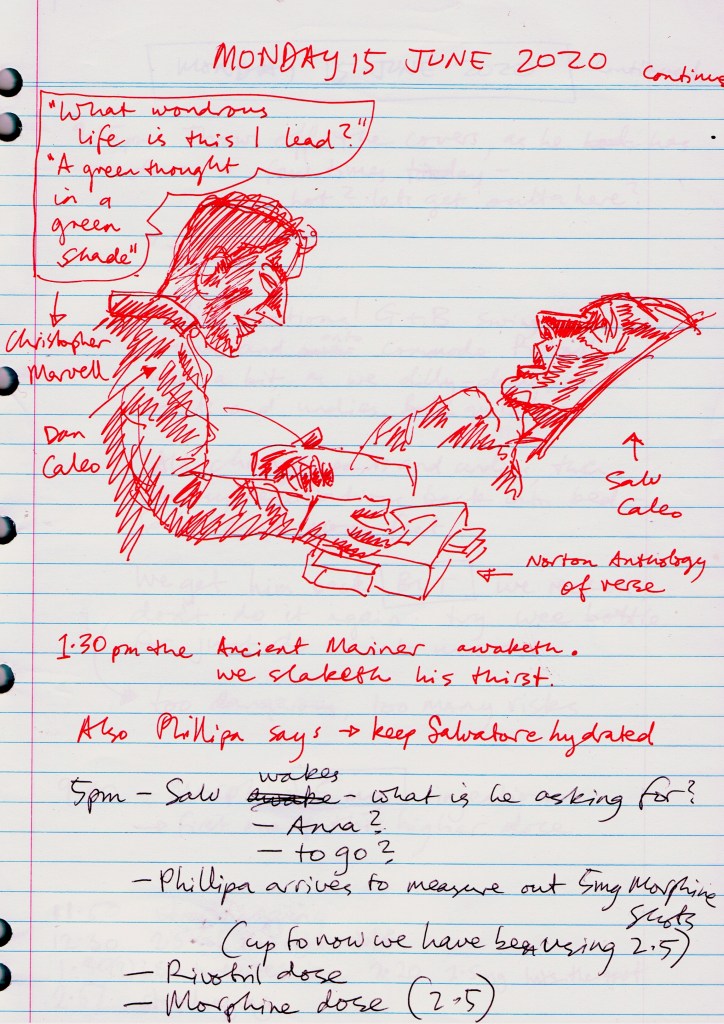 MONDAY 15 JUNE 2020
Continues
"What wondrous
life is this I lead?"
"A green thought
in a
green
shade"
Christopher
Marvell
Dan
Caleo
Salv
Caleo
Norton Anthology
of verse
1.30pm the Ancient Mariner awaketh.
we slaketh his thirst.
Also Phillipa says → keep Salvatore hydrated
wakes
5pm - Salv awake - what is he asking for?
- Anna?
- to go?
- Phillipa arrives to measure out 5mg Morphine
shots
(up to now we have been using 2.5)
- Rivotril dose
- Morphine dose (2.5)